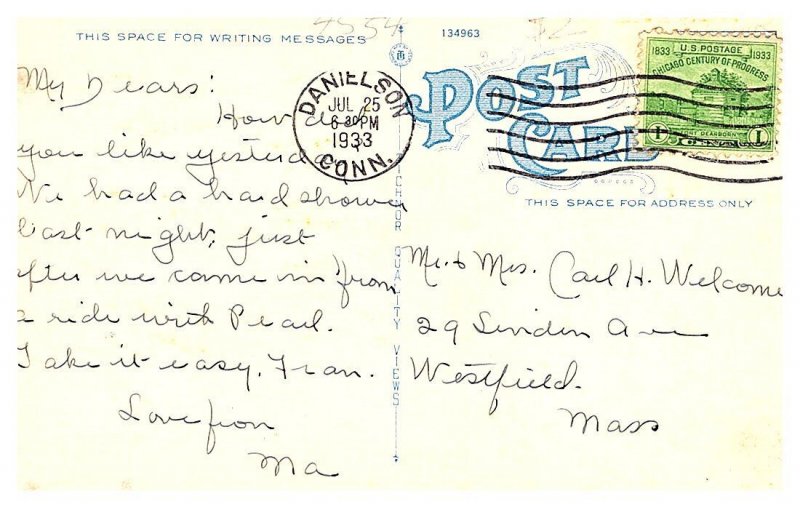 4554
THIS SPACE FOR WRITING MESSAGES
134963
My Dears:
How did
you like yesterd
We had a hard shower
last night, just
after we came in from
a ride with Pearl.
Take it easy, Fran.
Love from
Ma
DANIELSON
JUL 25
6-30PM
1933
CONN.
TICHNOR QUALITY VIEWS
POST
CARD
1833 U.S. POSTAGE 1933
CHICAGO CENTURY OF PROGRESS
FORT DEARBORN
1 CENT 1
THIS SPACE FOR ADDRESS ONLY
Mr. & Mrs. Carl H. Welcome
29 Linden Ave
Westfield.
Mass